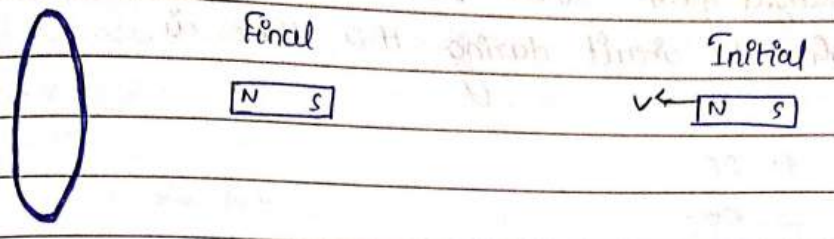 Final
Initial
N S
V N S